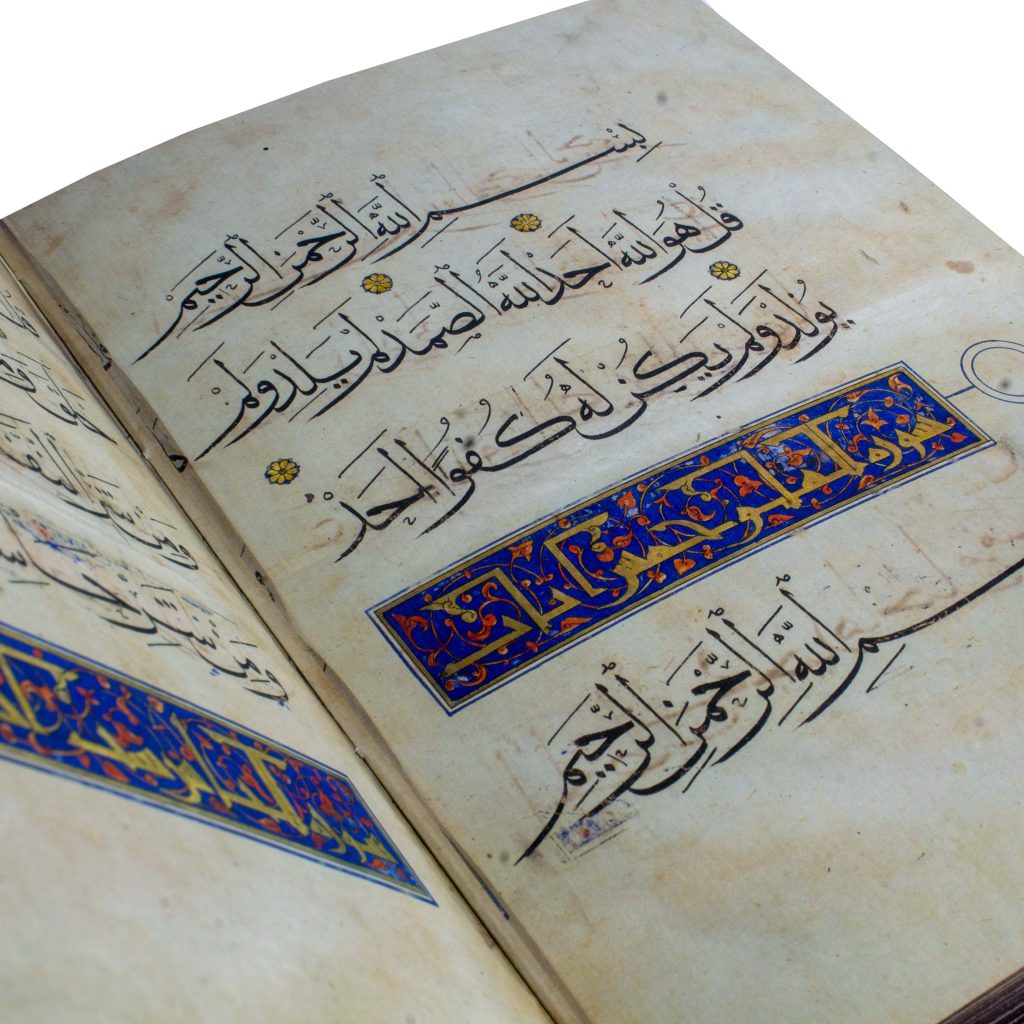 بِسْمِ اللَّهِ الرَّحْمَنِ الرَّحِيمِ
قُلْ هُوَ اللَّهُ أَحَدٌ اللَّهُ الصَّمَدُ لَمْ يَلِدْ وَلَمْ
يُولَدْ وَلَمْ يَكُنْ لَهُ كُفُوًا أَحَدٌ
سورة الفلق خمس آيات
بِسْمِ اللَّهِ الرَّحْمَنِ الرَّحِيمِ
ومن شر
ومن شر
سورة الناس